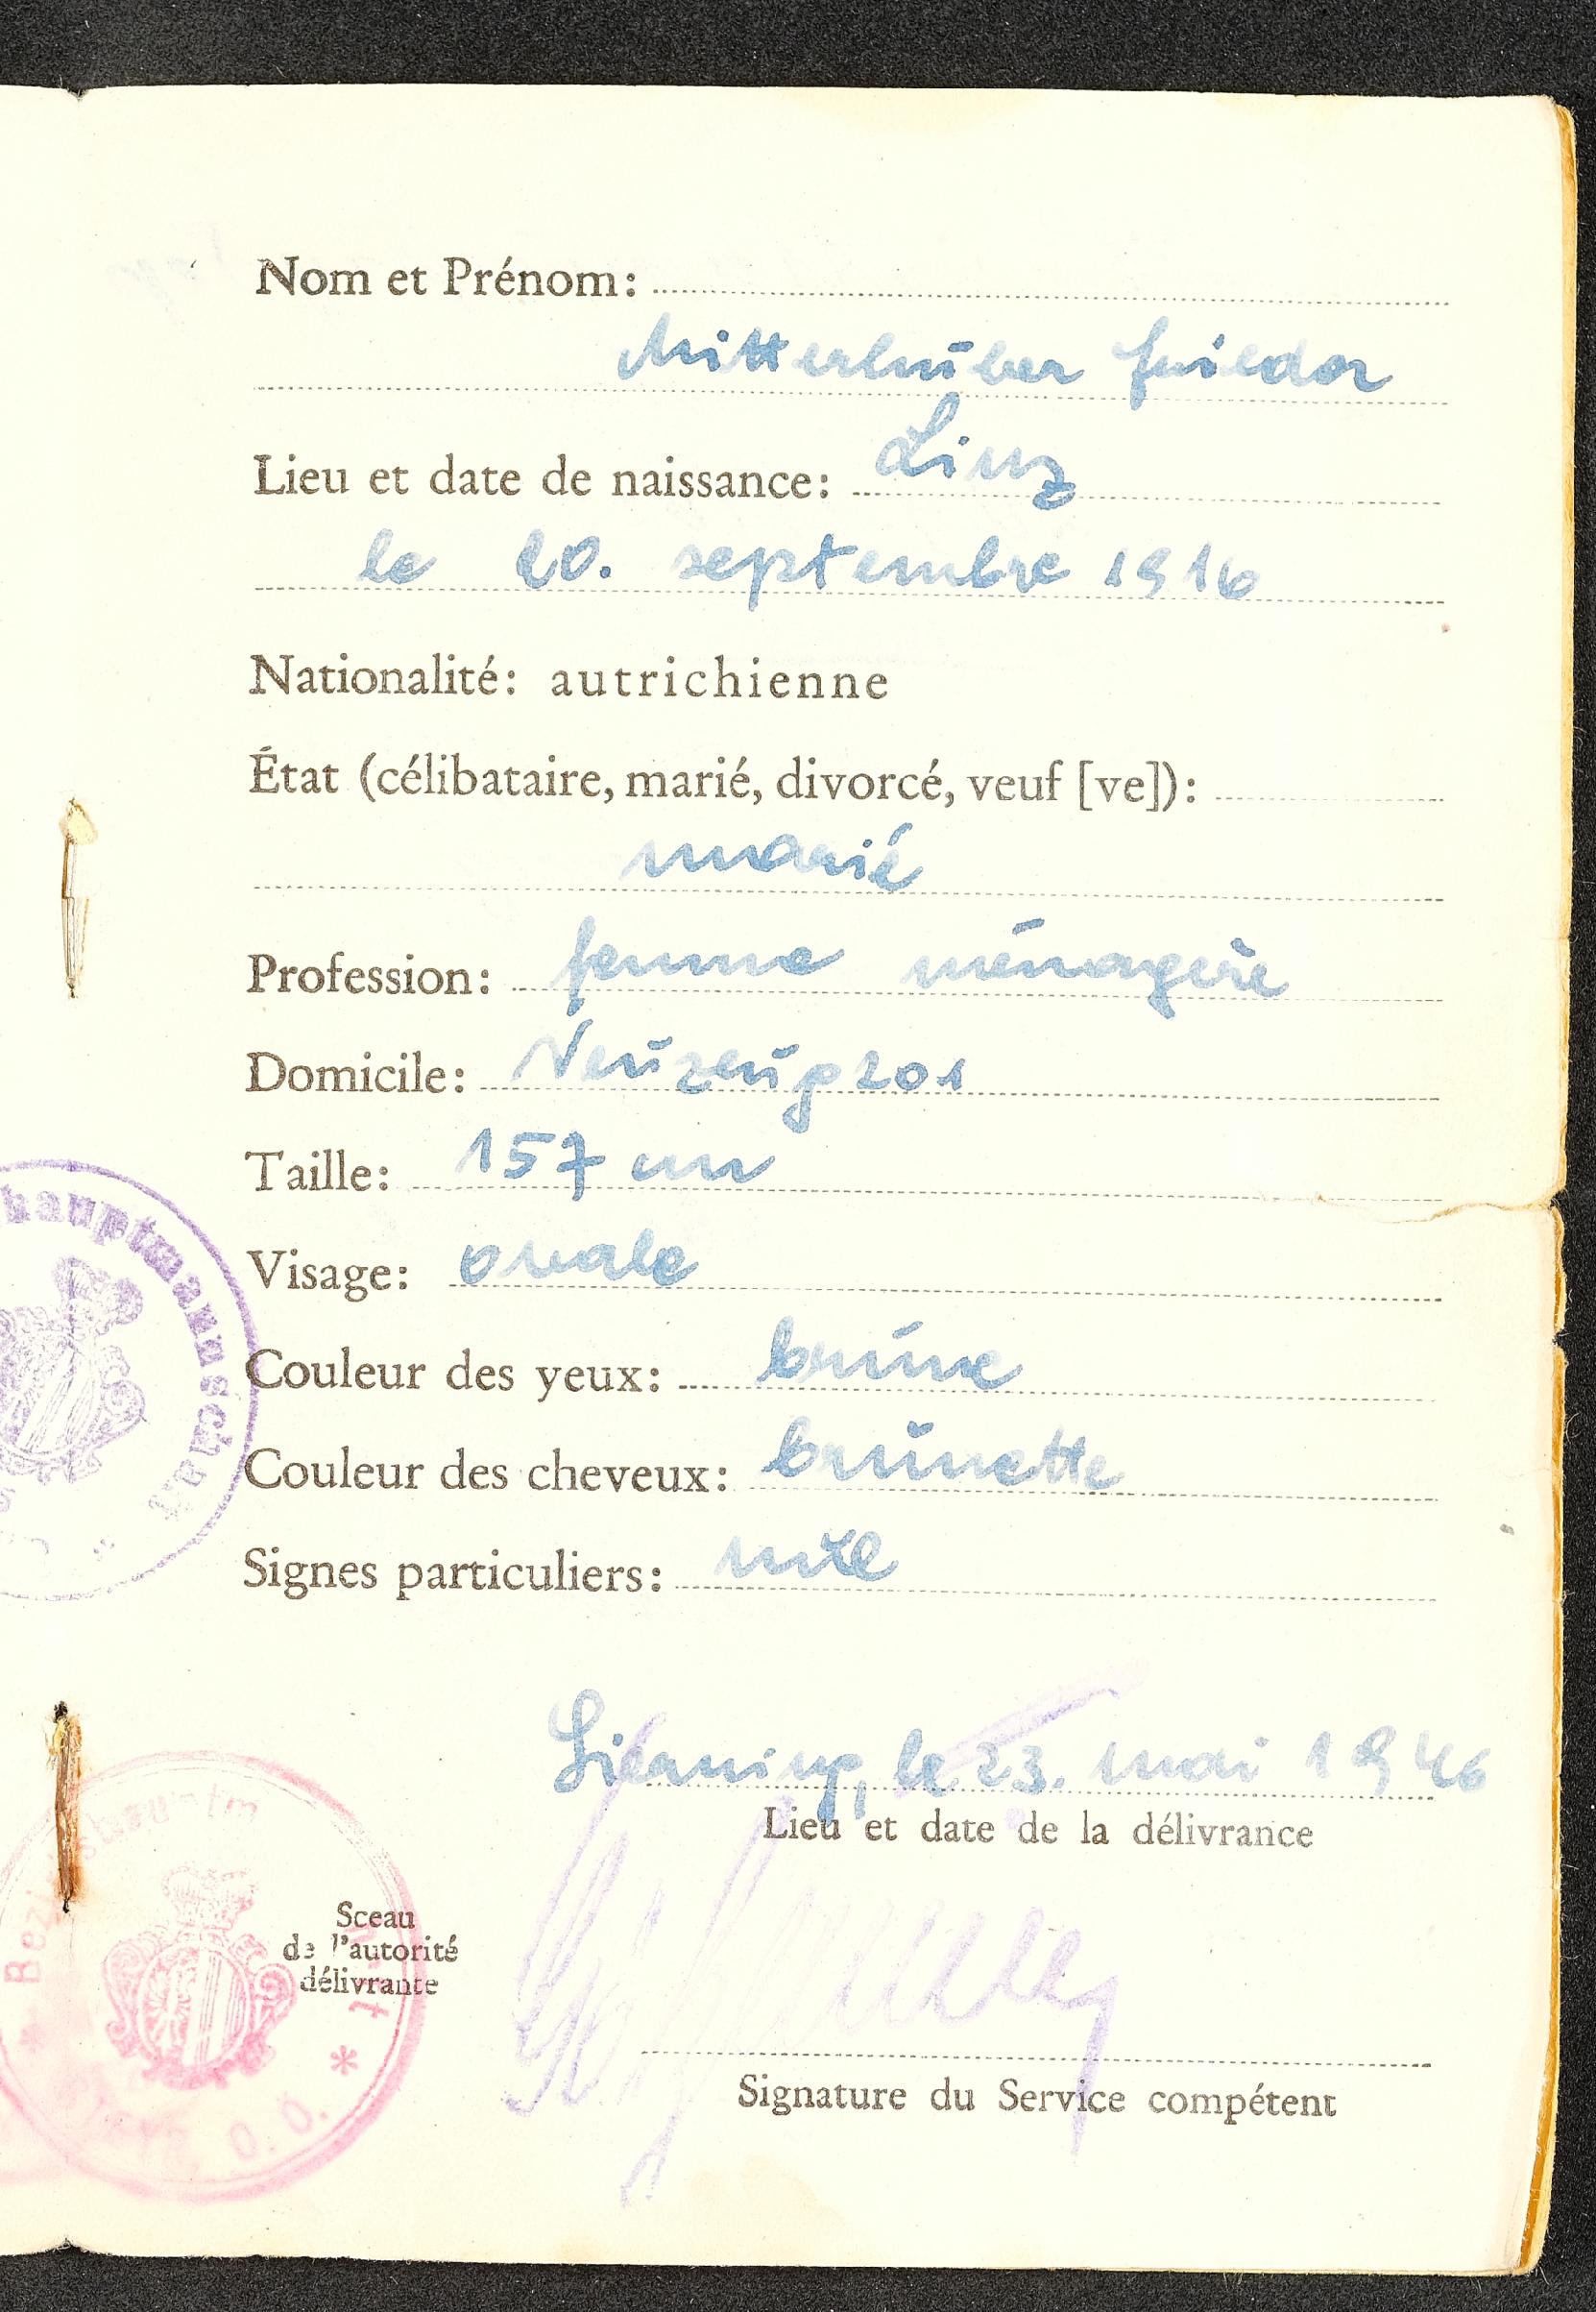 Nom et Prénom:
Mitterhuber Friedor
Lieu et date de naissance: Linz
le 20. septembre 1916
Nationalité: autrichienne
État (célibataire, marié, divorcé, veuf [ve]):
marié
Profession: femme ménagère
Domicile: Neuzeug 201
Taille: 157 cm
Visage: ovale
Couleur des yeux: brune
Couleur des cheveux: brunette
Signes particuliers:
hauptmannschaft
Sierning, le 23. mai 1946
Lieu et date de la délivrance
Sceau
de l'autorité
délivrante
O.Ö.
Signature du Service compétent